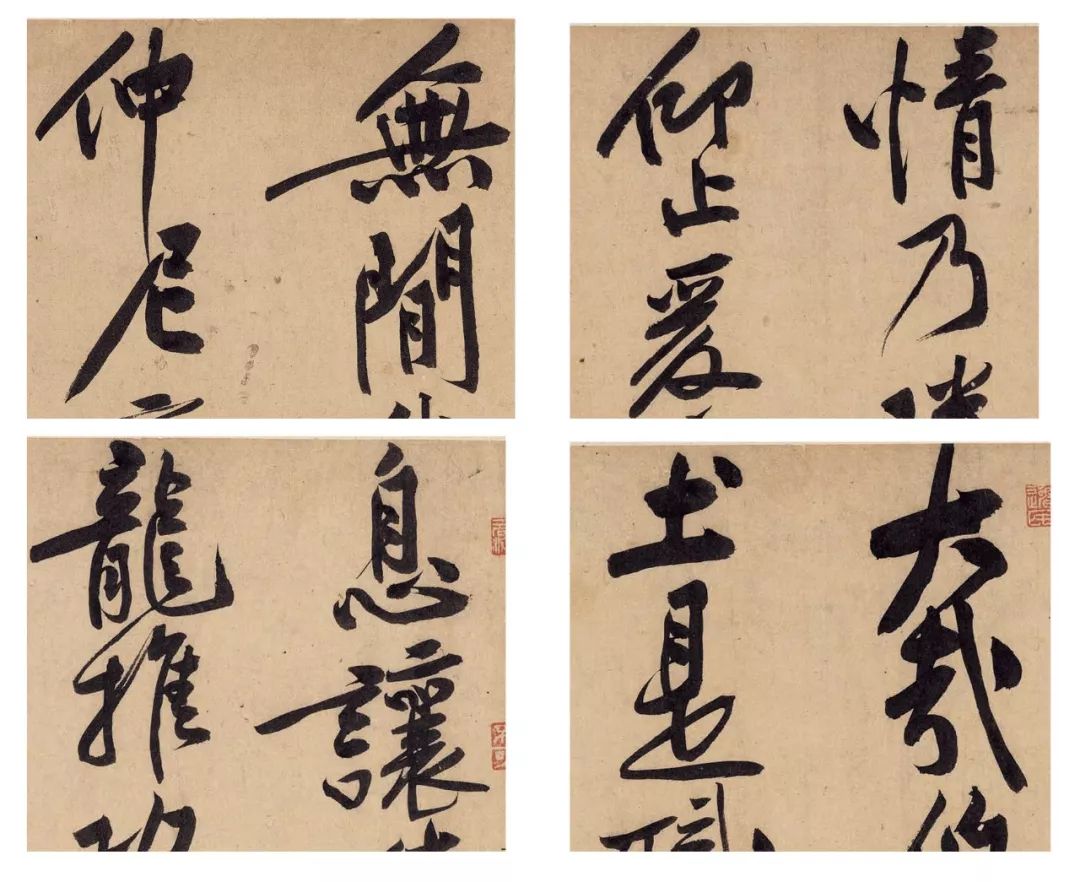 無間
仲尼
情乃
仰止爰
息讓
龍推
大哉
土是